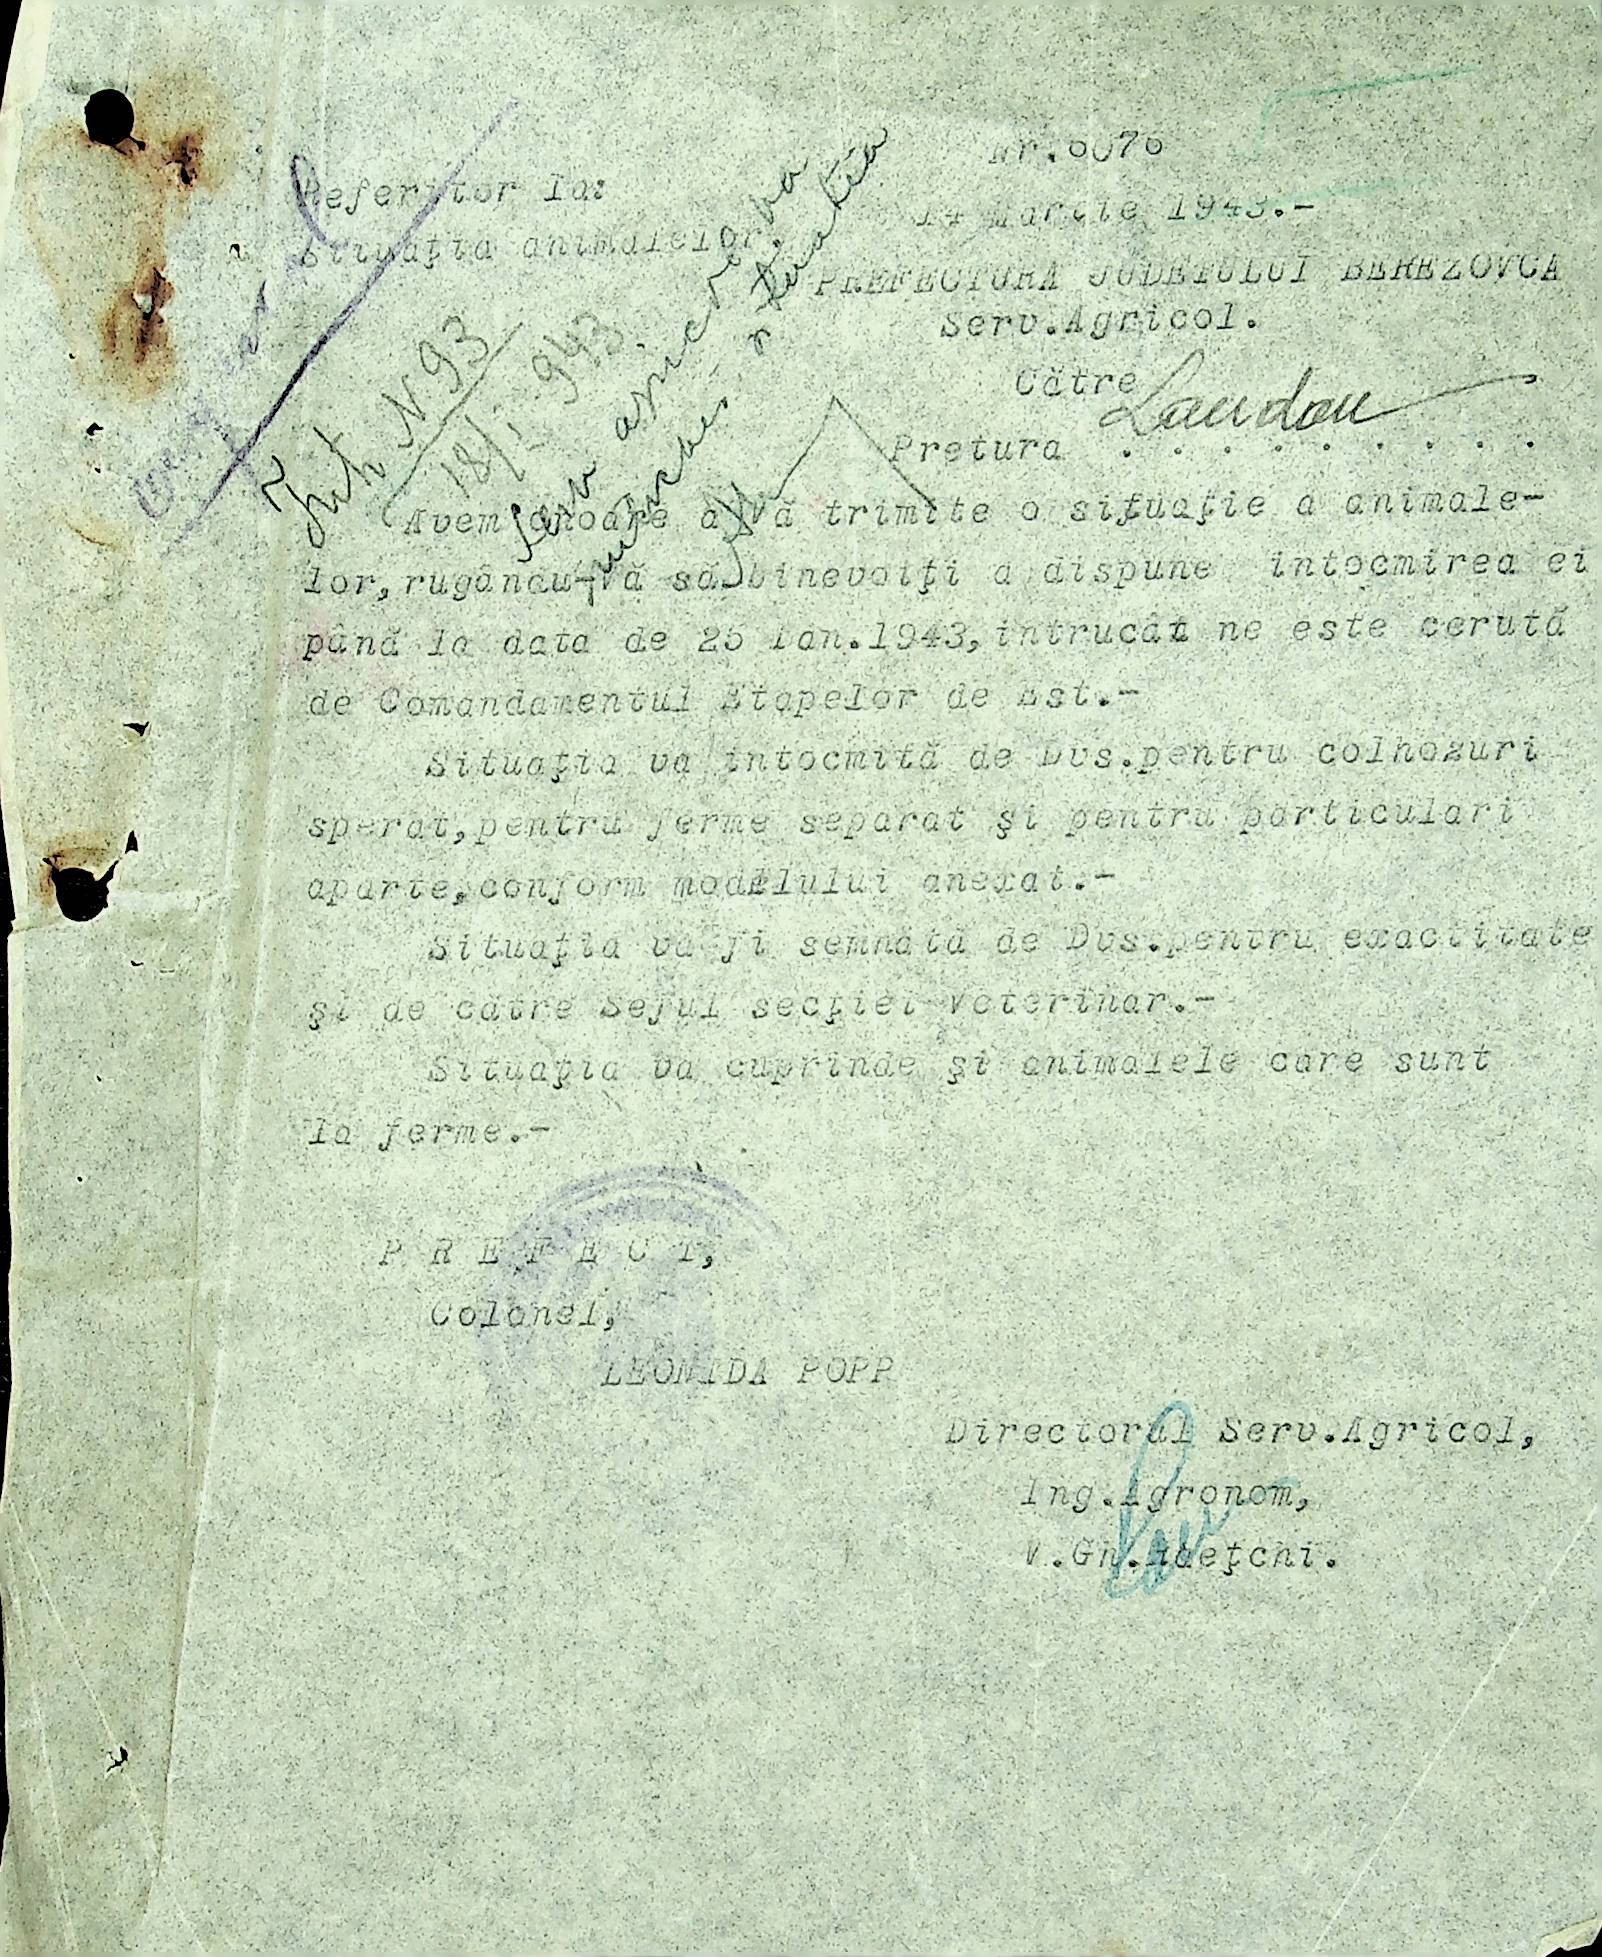 Referitor la:
Situaţia animalelor.
Nr.6076
14 Martie 1943.-
PREFECTURA JUDEŢULUI BEREZOVCA
Serv.Agricol.
Către
Pretura Landau
Int. N 93
18/I 943.
Avem onoare a vă trimite o situaţie a animale-
lor,rugându-vă să binevoiţi a dispune intocmirea ei
până la data de 25 Ian.1943,intrucât ne este cerută
de Comandamentul Etapelor de Est.-
Situaţia va intocmită de Dvs.pentru colhozuri
sperat,pentru ferme separat şi pentru particulari
aparte,conform modelului anexat.-
Situaţia va fi semnată de Dvs.pentru exactitate
şi de către Seful secţiei Veterinar.-
Situaţia va cuprinde şi animalele care sunt
la ferme.-
P R E F E C T,
Colonel,
LEONIDA POPP
Directorul Serv.Agricol,
Ing.Agronom,
V.Gh.